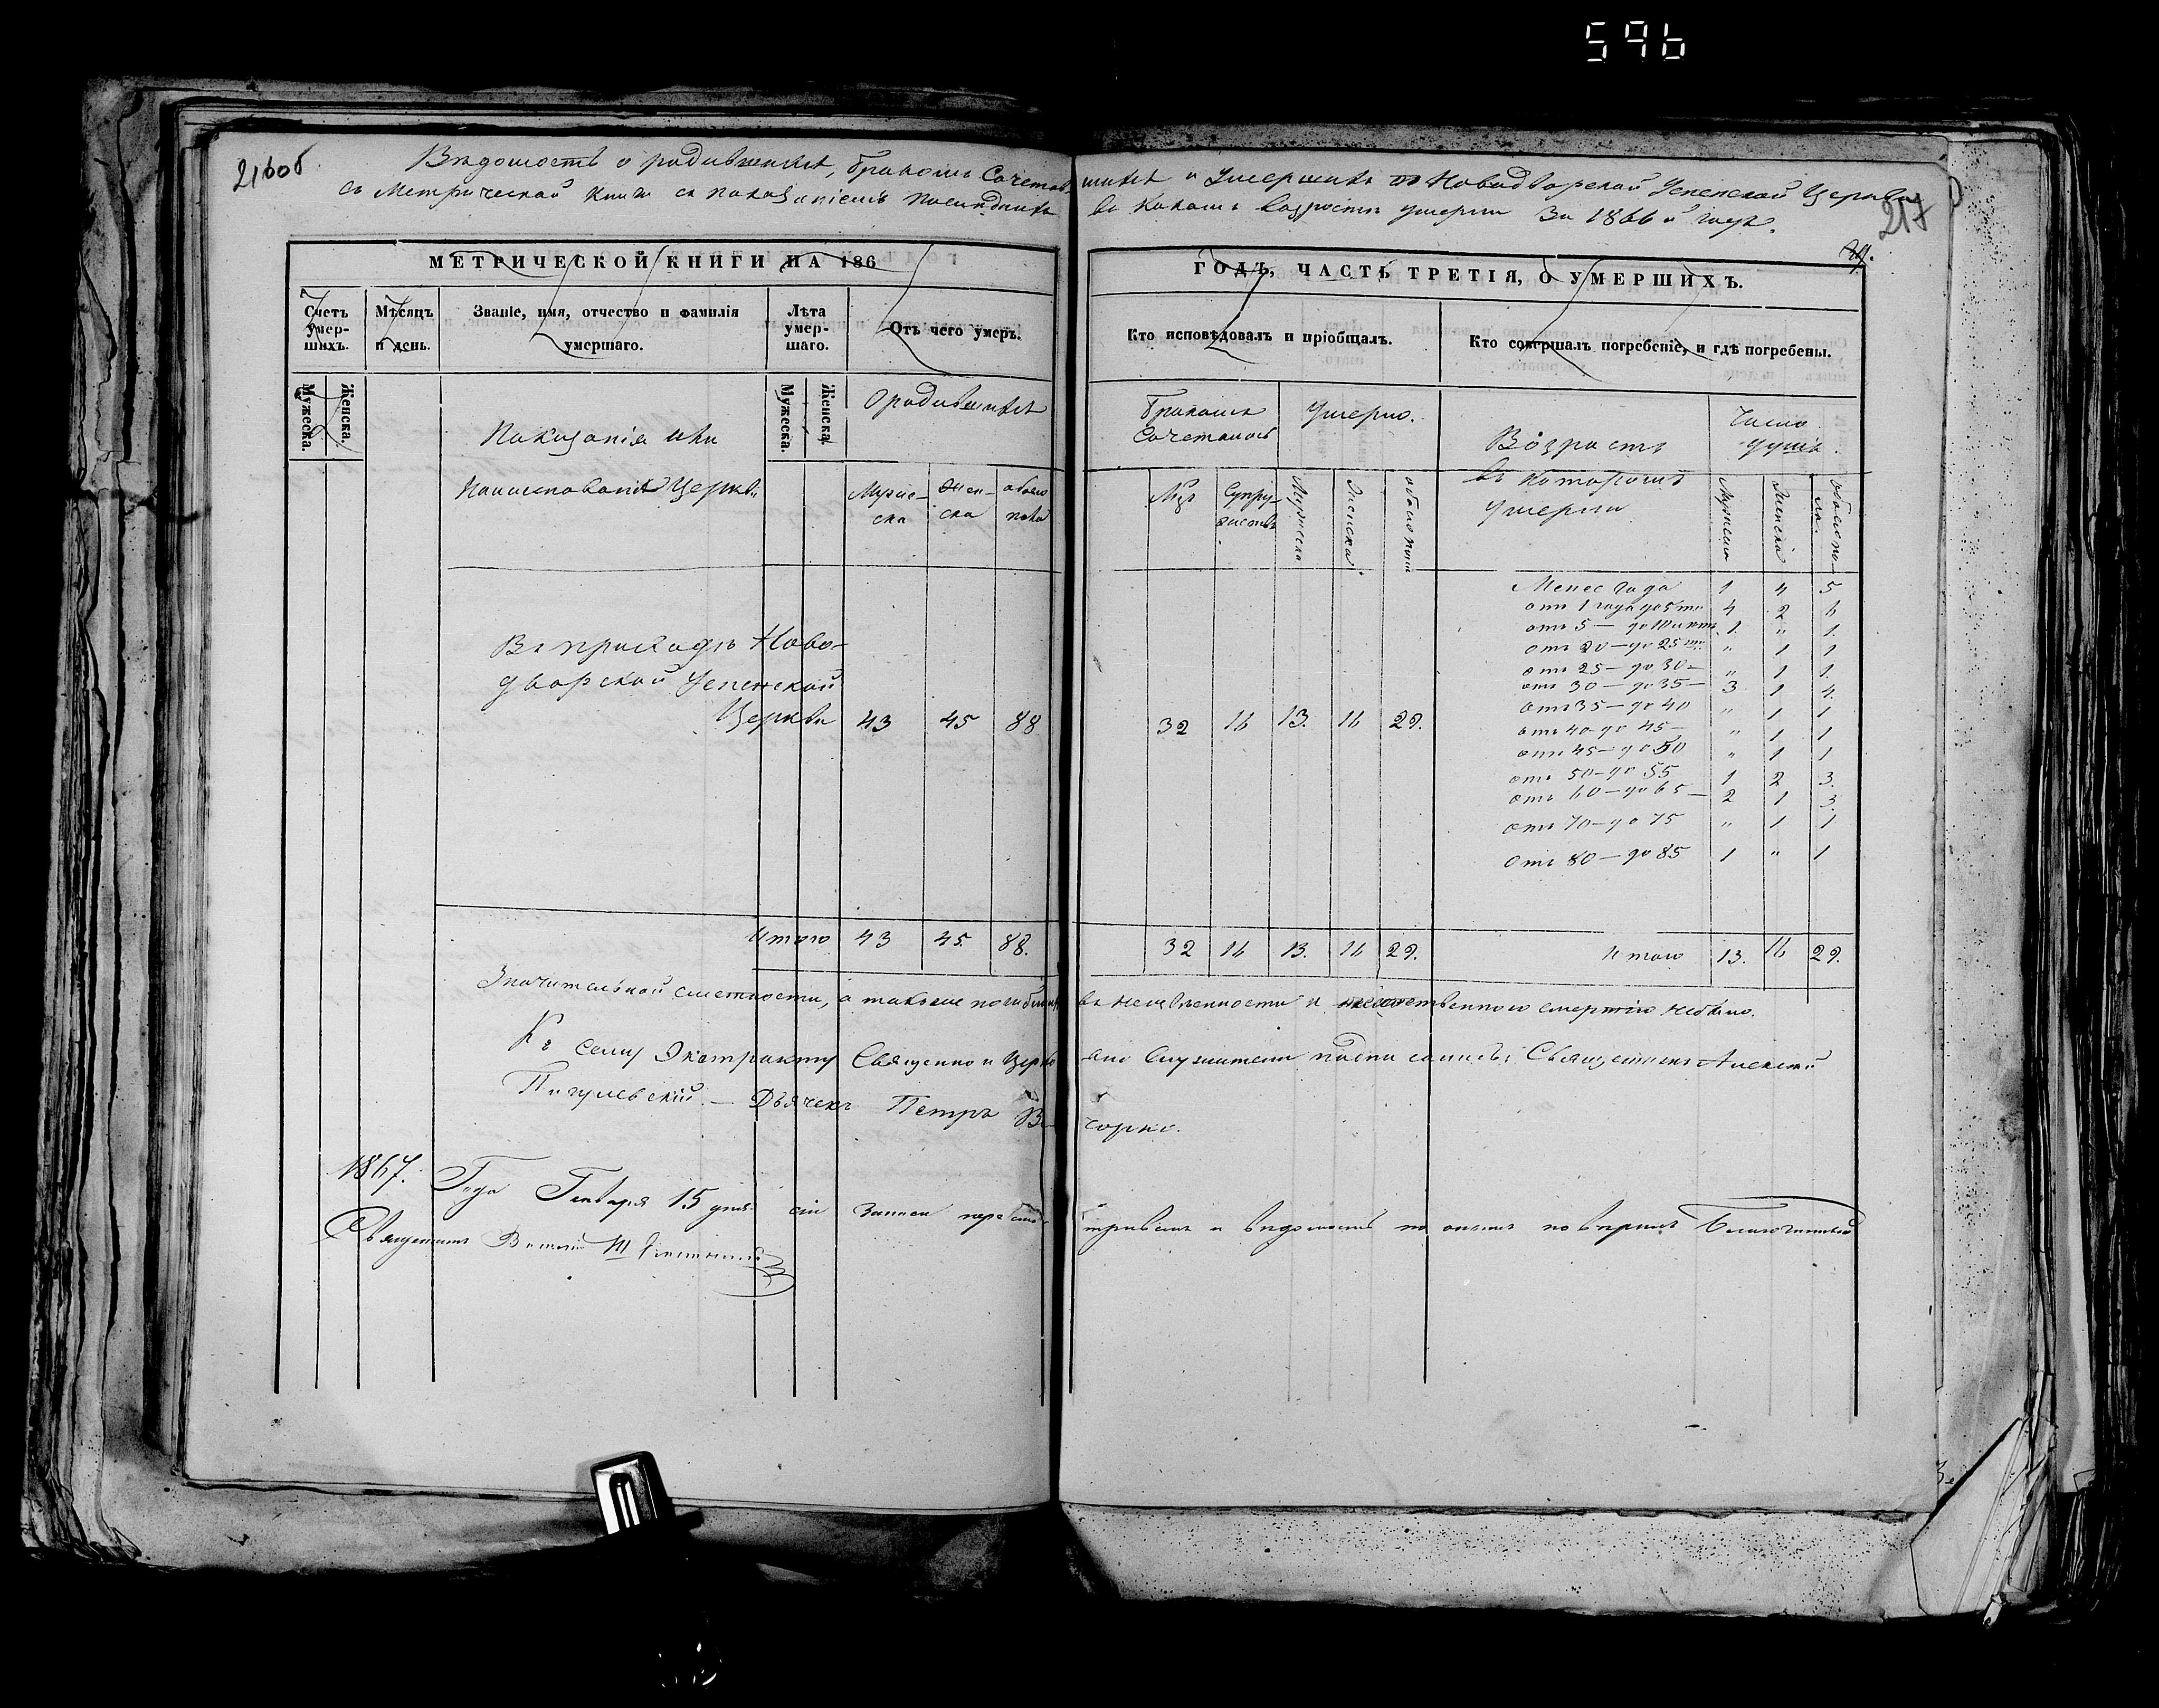 596
216об
Вѣдомость о родившихся, бракомъ Сочетавшихся и Умершихъ по Новодворской Успенской Церкви
съ Метрической Книги съ показаніемъ послѣднихъ въ какомъ возрастѣ умерли За 1866 й годъ.
217
МЕТРИЧЕСКОЙ КНИГИ НА 186 ГОДЪ, ЧАСТЬ ТРЕТІЯ, О УМЕРШИХЪ.
Счетъ умершихъ.
Мѣсяцъ и день.
Званіе, имя, отчество и фамилія умершаго.
Лѣта умершаго.
Отъ чего умеръ.
Кто исповѣдовалъ и пріобщалъ.
Кто совершалъ погребеніе, и гдѣ погребены.
Мужеска. Женска.
Мужеска. Женска.
О родившихся
Показанія или
Наименованіе Церкви
Мужеска Женска обоего пола
Бракомъ Сочеталось
Умерло.
Возрастъ
въ которомъ
Умерли
Число душъ.
Лицъ Супружествъ Мужеска Женска обоего пола
Мужеска Женска обоего пола
Въ приходѣ Ново-
дворской Успенской
Церкви 43 45 88 32 16 13. 16 29.
Менее года 1 4 5
отъ 1 года до 5ти 4 2 6
отъ 5 — до 10 лѣтъ 1. " 1.
отъ 20 — до 25 " 1 1
отъ 25 — до 30 — " 1 1.
отъ 30 — до 35 — 3 1 4.
отъ 35 — до 40 " 1 1
отъ 40 до 45 — " 1 1
отъ 45 — до 50 " 1 1
отъ 50 — до 55 1 2 3.
отъ 60 — до 65 — 2 1 3.
отъ 70 — до 75 " 1 1
отъ 80 — до 85 1 " 1
Итого 43 45 88. 32 16 13. 16 29. Итого 13. 16 29.
Значительной смертности, а также погибшихъ въ неизвѣстности и неестественною смертію небыло.
Къ сему Экстракту Священно и Церковно Служители подписались: Священникъ Алексѣй
Пигулевскій. — Дьячекъ Петръ
1867. Года Генваря 15 дня сіи Записи пересматривалъ и вѣдомость по онымъ повѣрилъ Благочинный
Священникъ